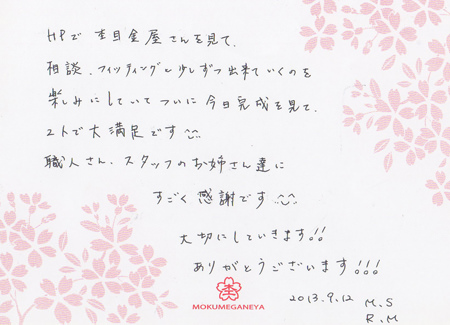 HPで 杢目金屋さんを見て、
相談、フィッティングと少しずつ出来ていくのを
楽しみにしていてついに今日完成を見て、
2人で大満足です
職人さん、スタッフのお姉さん達に
すごく感謝です
大切にしていきます!!
ありがとうございます!!!
MOKUMEGANEYA
2013.9.12 M.S
R.M